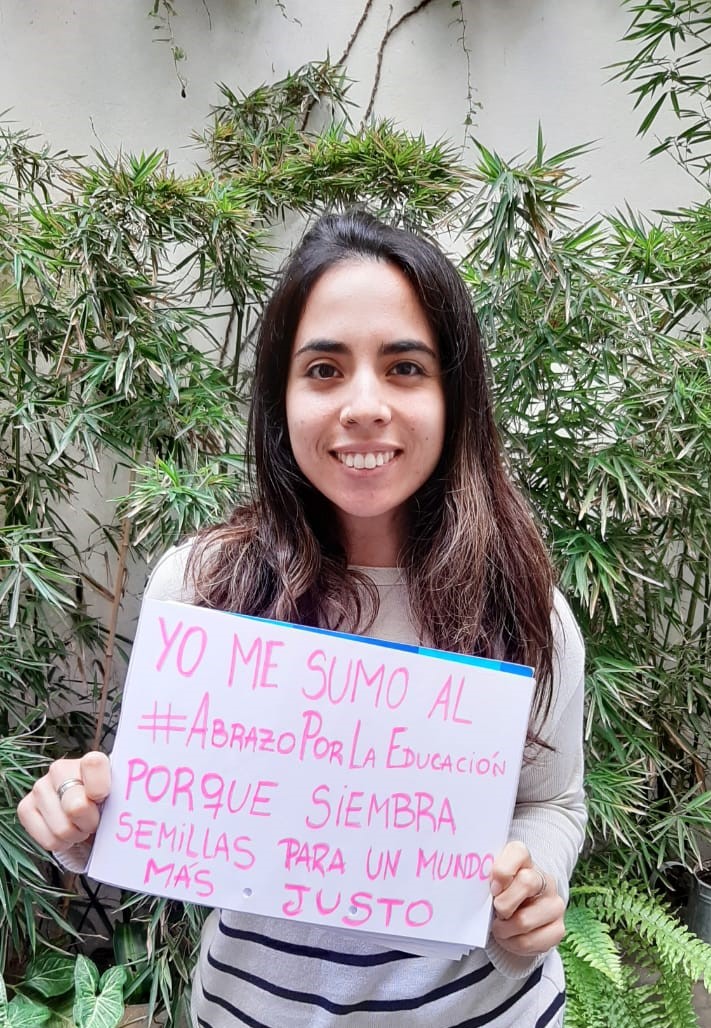 YO ME SUMO AL
#ABRAZOPORLA EDUCACIÓN
PORQUE SIEMBRA
SEMILLAS PARA UN MUNDO
MÁS JUSTO